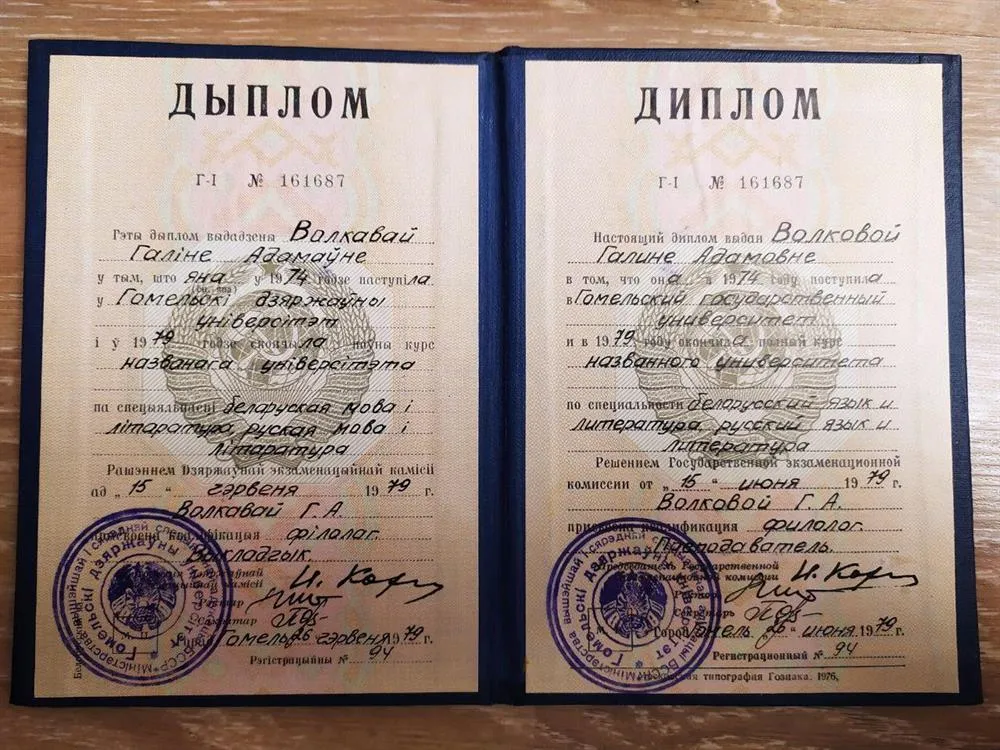 ДЫПЛОМ
Г-I № 161687
Гэты дыплом выдадзены Волкавай
Галіне Адамаўне
у тым, што яна у 1974 годзе паступіла
у Гомельскі дзяржаўны
універсітэт
і ў 1979 годзе скончыла поўны курс
названага універсітэта
па спецыяльнасці беларуская мова і
літаратура, руская мова і
літаратура
Рашэннем Дзяржаўнай экзаменацыйнай камісіі
ад „15“ чэрвеня 1979 г.
Волкавай Г. А.
прысвоена кваліфікацыя філолаг.
Выкладчык.
Рэктар
Сакратар
Гомель 26 чэрвеня 1979 г.
Рэгістрацыйны № 94
ДИПЛОМ
Г-I № 161687
Настоящий диплом выдан Волковой
Галине Адамовне
в том, что она в 1974 году поступила
в Гомельский государственный
университет
и в 1979 году окончила полный курс
названного университета
по специальности белорусский язык и
литература, русский язык и
литература
Решением Государственной экзаменационной
комиссии от „15“ июня 1979 г.
Волковой Г. А.
присвоена квалификация филолог.
Преподаватель.
Председатель Государственной
экзаменационной комиссии
Ректор
Секретарь
Город 26 „ июня 1979 г.
Регистрационный № 94
типография Гознака. 1976.